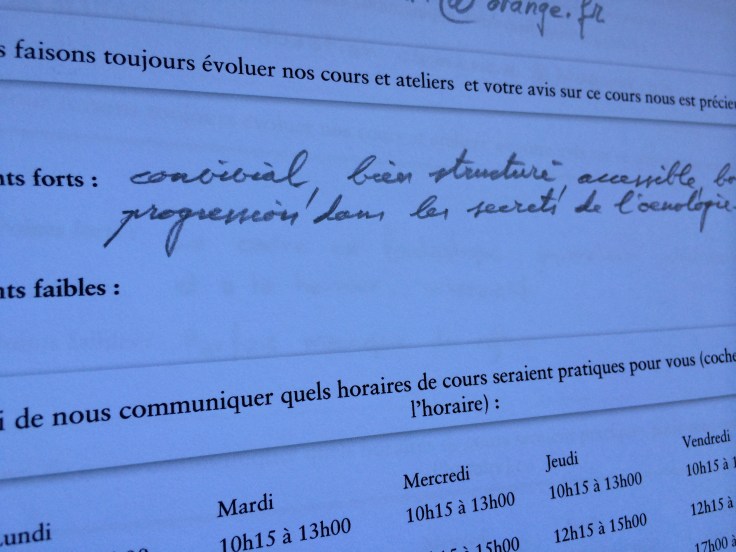 @orange.fr
s faisons toujours évoluer nos cours et ateliers et votre avis sur ce cours nous est précieu
nts forts : convivial, bien structuré, accessible, bo
progression dans les secrets de l'oenologie.
nts faibles :
i de nous communiquer quels horaires de cours seraient pratiques pour vous (coche
l'horaire) :
Lundi Mardi Mercredi Jeudi Vendredi
10h15 à 13h00 10h15 à 13h00 10h15 à 13h00 10h15 à 1
15h00 12h15 à 15h00 12h15 à
17h00 à